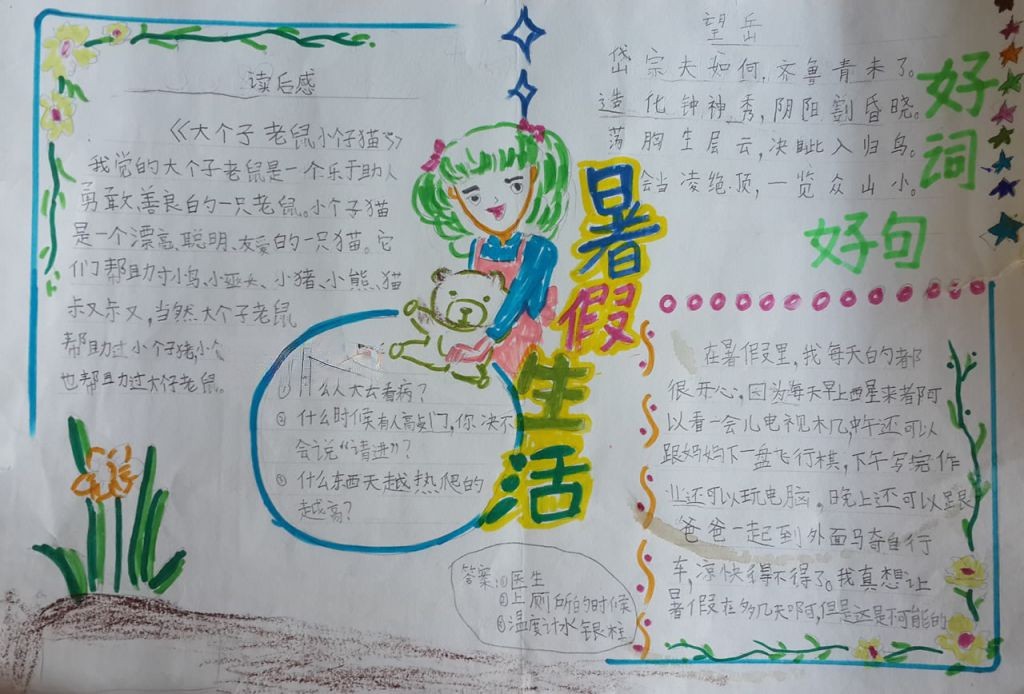 读后感
《大个子老鼠小个子猫》
我觉的大个子老鼠是一个乐于助人
勇敢、善良的一只老鼠。小个子猫
是一个漂亮、聪明、友爱的一只猫。它
们帮助过小鸟、小巫头、小猪、小熊、猫
叔叔,当然大个子老鼠
帮助过小个子猪,小个
也帮助过大仔老鼠。
暑假生活
①什么人太去看病?
②什么时候有人高敲门,你决不
会说“请进”?
③什么东西天越热爬的
越高?
答案:①医生
②上厕所的时候
③温度计水银柱
望岳
岱宗夫如何,齐鲁青未了。
造化钟神秀,阴阳割昏晓。
荡胸生层云,决眦入归鸟。
会当凌绝顶,一览众山小。
好词
好句
在暑假里,我每天的都
很开心,因为每天早上西星来者阿
以看一会儿电视机,中午还可以
跟妈妈下一盘飞行棋,下午写完作
业还可以玩电脑。晚上还可以跟
爸爸一起到外面马奇自行
车,凉快得不得了。我真想让
暑假在多几天啊,但是这是不可能的